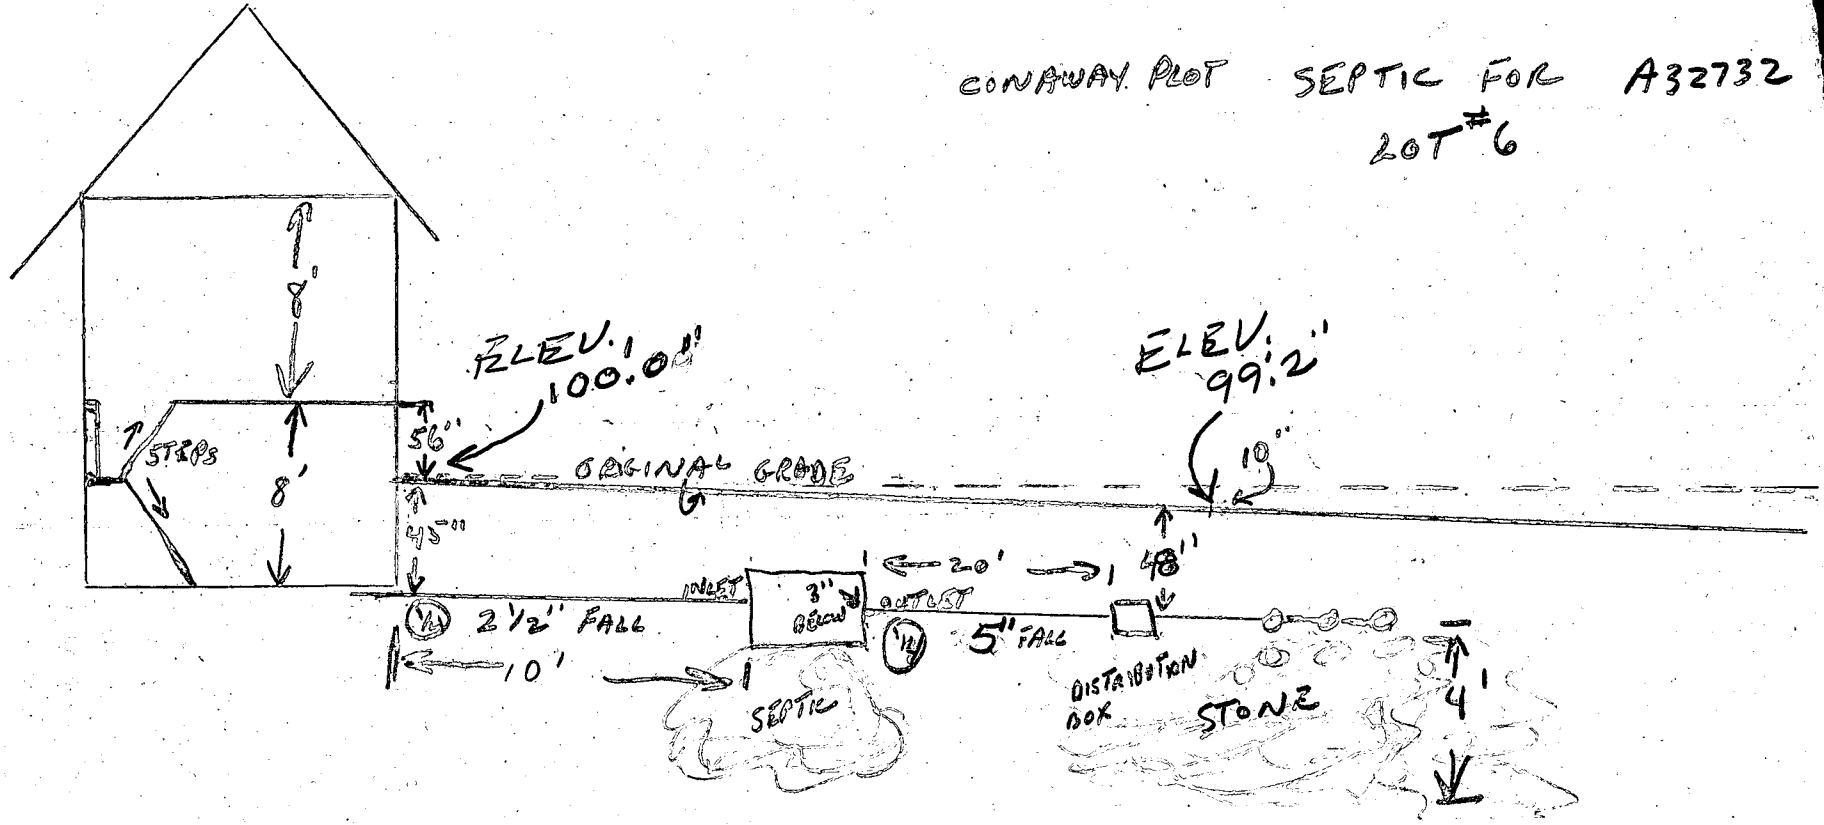 CONAWAY PLOT SEPTIC FOR A32732
LOT #6
8'
ELEV.
100.'0"
ELEV.
99.'2"
56"
STEPS
8'
ORIGINAL GRADE
10"
45"
48"
20'
INLET
3"
BELOW
OUTLET
2 1/2" FALL
5" FALL
10'
SEPTIC
DISTRIBUTION
BOX
STONE
4'